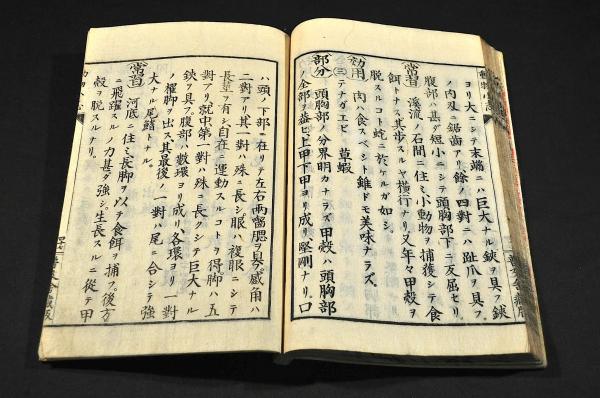 ヨリ大ニシテ末端ニハ巨大ナル鋏ヲ具フ鋏
ノ内刄ニ鋸齒アリ餘ノ四對ニハ趾爪ヲ具フ
腹部ハ甚ダ短小ニシテ頭胸部下ニ反屈セリ
常習 溪流ノ石間ニ住ミ小動物ヲ捕獲シテ食
餌トナス其歩スルヤ横行ナリ又年々甲殼ヲ
脱スルコト蛇ニ於ケルガ如シ
効用 肉ハ食スベシト雖ドモ美味ナラズ
(二)テナガエビ 草蝦
部分 頭胸部ノ分界明カナラズ甲殼ハ頭胸部
ノ全部ヲ蓋ヒ上甲下甲ヨリ成リ堅剛ナリ口
ハ頭ノ下部ニ在リテ左右兩齶腮ヲ具ヘ感角ハ
二對アリ其一對ハ殊ニ長シ眼ハ複眼ニシテ
長莖ヲ有シ自在ニ運動スルコトヲ得脚ハ五
對アリ就中第一對ハ殊ニ長クシテ巨大ナル
鋏ヲ具フ腹部ハ數環ヨリ成リ各環ヨリ一對
ノ橈脚ヲ出ス其最後ノ一對ハ尾ニ合シテ強
大ナル尾鰭トナル
常習 河底ニ住ミ長脚ヲ以テ食餌ヲ捕フ後方
ニ飛躍スルノ力甚ダ強シ生長スルニ從テ甲
殼ヲ脱スルナリ